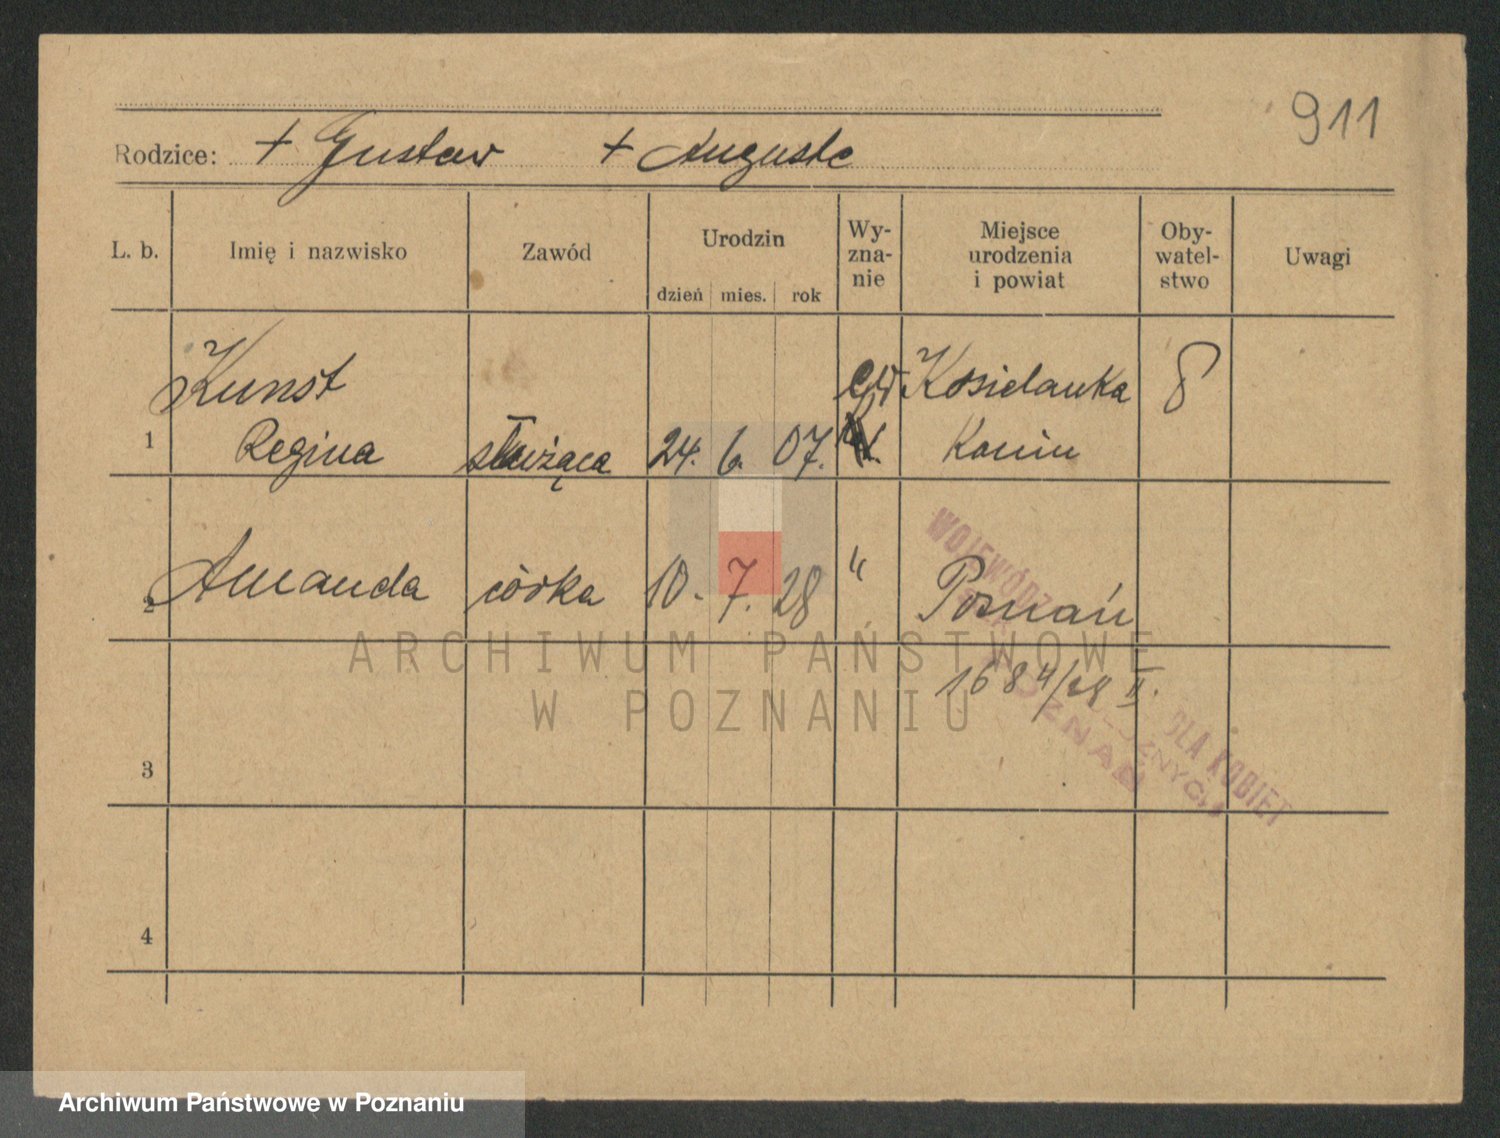 911
Rodzice: + Gustav + Auguste
L. b. Imię i nazwisko Zawód Urodzin Wy-zna-nie Miejsce urodzenia i powiat Oby-watel-stwo Uwagi
dzień mies. rok
Kunst Kosielanka
1 Regina służąca 24. 6. 07. Konin
2 Amanda córka 10. 7. 28 " Poznań
1684/28 II.
3
4
WOJEWÓDZ
DLA KOBIET
ARCHIWUM PAŃSTWOWE
W POZNANIU
Archiwum Państwowe w Poznaniu